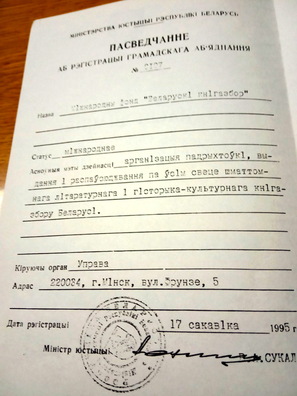 МІНІСТЭРСТВА ЮСТЫЦЫІ РЭСПУБЛІКІ БЕЛАРУСЬ
ПАСВЕДЧАННЕ
АБ РЭГІСТРАЦЫІ ГРАМАДСКАГА АБ'ЯДНАННЯ
№
Назва Міжнародны фонд "Беларускі кнігазбор"
Статус міжнароднае
Асноўныя мэты дзейнасці арганізацыя падрыхтоўкі, вы-
дання і распаўсюджвання па ўсім свеце шматтом-
нага літаратурнага і гісторыка-культурнага кніга-
збору Беларусі.
Кіруючы орган Управа
Адрас 220034, г.Мінск, вул.Фрунзе, 5
Дата рэгістрацыі 17 сакавіка 1995 г
Міністр юстыцыі СУКАЛ